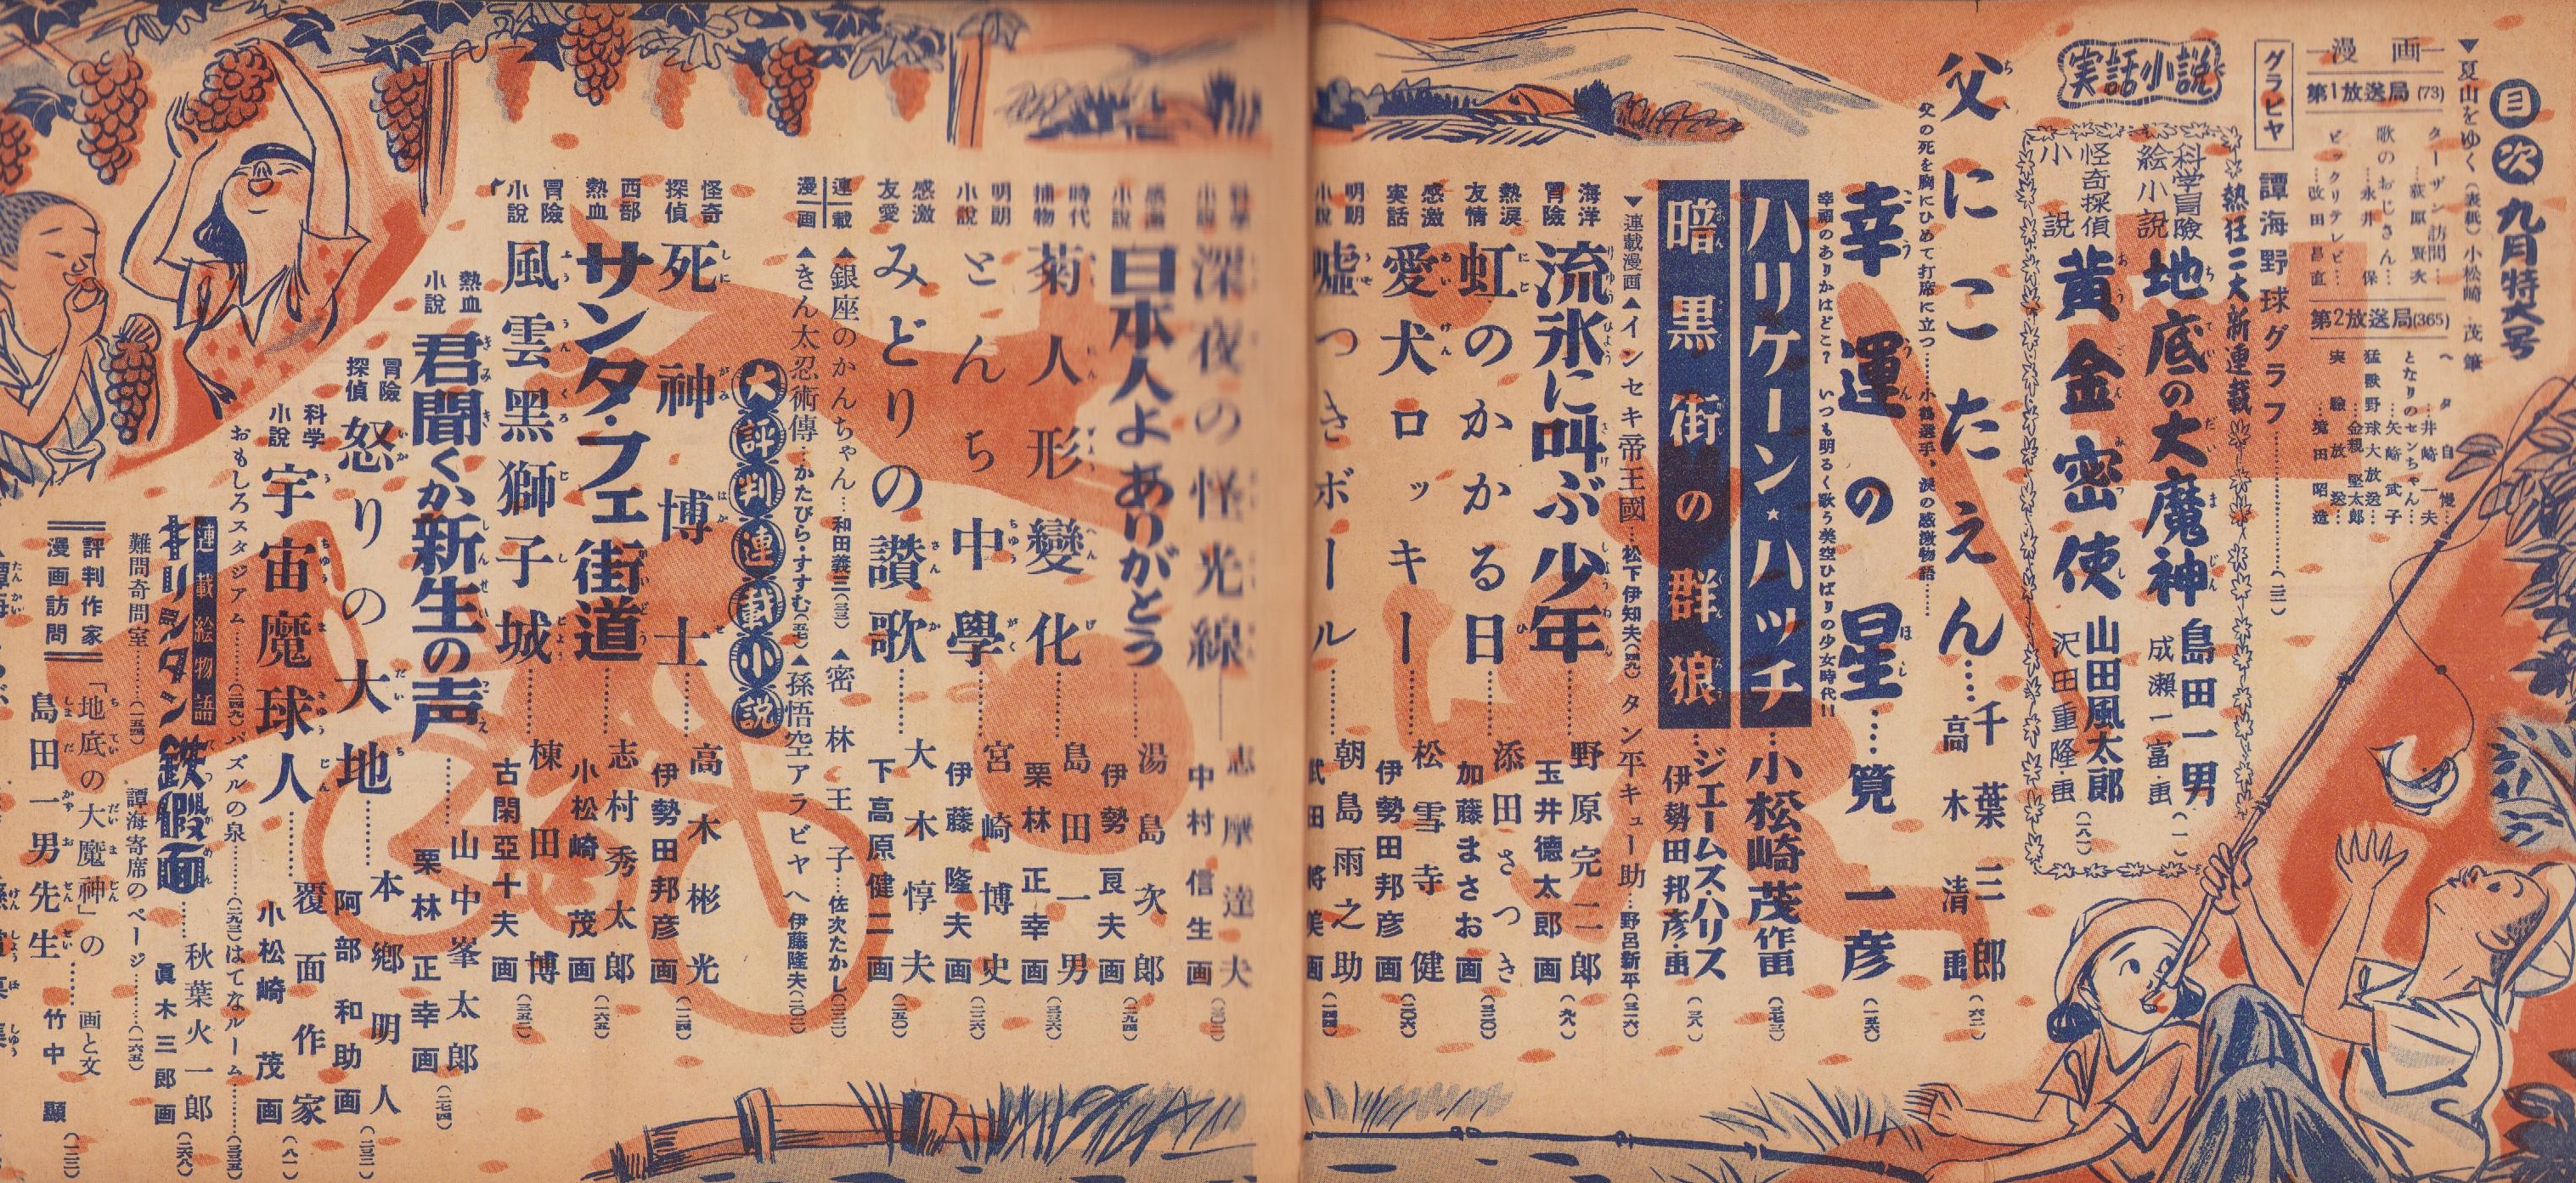 目次 九月特大号
▼夏山をゆく(表紙)小松崎 茂 筆
漫画
第1放送局(73)
ターザン訪問…荻原賢次
歌のおじさん…永井 保
ビックリテレビ…改田昌直
第2放送局(365)
ヘタ自慢…井崎一夫
となりのセンちゃん…矢崎武子
猛獣野球大放送…金親堅太郎
実験放送…境田昭造
グラビヤ
譚海野球グラフ
熱狂二大新連載
実話小説
科学冒険絵小説
地底の大魔神
島田一男
成瀬一富・画
(一)
怪奇探偵小説
黄金密使
山田風太郎
沢田重隆・画
(八一)
父にこたえん
千葉三郎
高木 清画
(六二)
父の死を胸にひめて打席に立つ……小鶴選手、涙の感激物語……
幸運の星
筧 一彦
(一五六)
幸福のありかはどこ? いつも明るく歌う美空ひばりの少女時代!!
ハリケーン★ハッチ
小松崎茂作画
暗黒街の群狼
ジェームスハリス
伊勢田邦彦・画
▼連載漫画▲インセキ帝王國…松下伊知夫
タン平キュー助…野呂新平
海洋冒險
流氷に叫ぶ少年
野原完二郎
玉井德太郎画
(九八)
熱涙友情
虹のかかる日
添田さつき
加藤まさお画
感激実話
愛犬ロッキー
松雪寺健
伊勢田邦彦画
(二〇六)
明朗小説
嘘つきボール
朝島雨之助
武田将美画
(一四四)
科學小説
深夜の怪光線
志摩達夫
中村信生画
感激小説
日本人よありがとう
湯島次郎
伊勢良夫画
時代捕物
菊人形變化
島田一男
栗林正幸画
明朗小説
とんち中學
宮崎博史
伊藤隆夫画
感激友愛
みどりの讃歌
大木惇夫
下高原健二画
(二五〇)
連載漫画
▲銀座のかんちゃん…和田義三
▲密林王子…佐次たかし
▲きん太忍術傳…かたびら・すすむ
▲孫悟空アラビヤへ 伊藤隆夫
大評判連載小説
怪奇探偵
死神博士
高木彬光
伊勢田邦彦画
(一二四)
西部熱血
サンタ・フェ街道
志村秀太郎
小松崎 茂画
(一六五)
冒險小説
風雲黑獅子城
棟田 博
古閑亞十夫画
熱血小説
君聞くか新生の声
山中峯太郎
栗林正幸画
(二七四)
冒險探偵
怒りの大地
本郷明人
阿部和助画
科学小説
宇宙魔球人
覆面作家
小松崎 茂画
(八一)
おもしろスタジアム
パズルの泉
はてなルーム
連載絵物語
キリンタン鉄假面
秋葉火一郎
眞木三郎画
(二六八)
難問奇問室
譚海寄席のページ
(一六五)
評判作家漫画訪問
「地底の大魔神」の
島田一男先生
画と文
竹中 顯